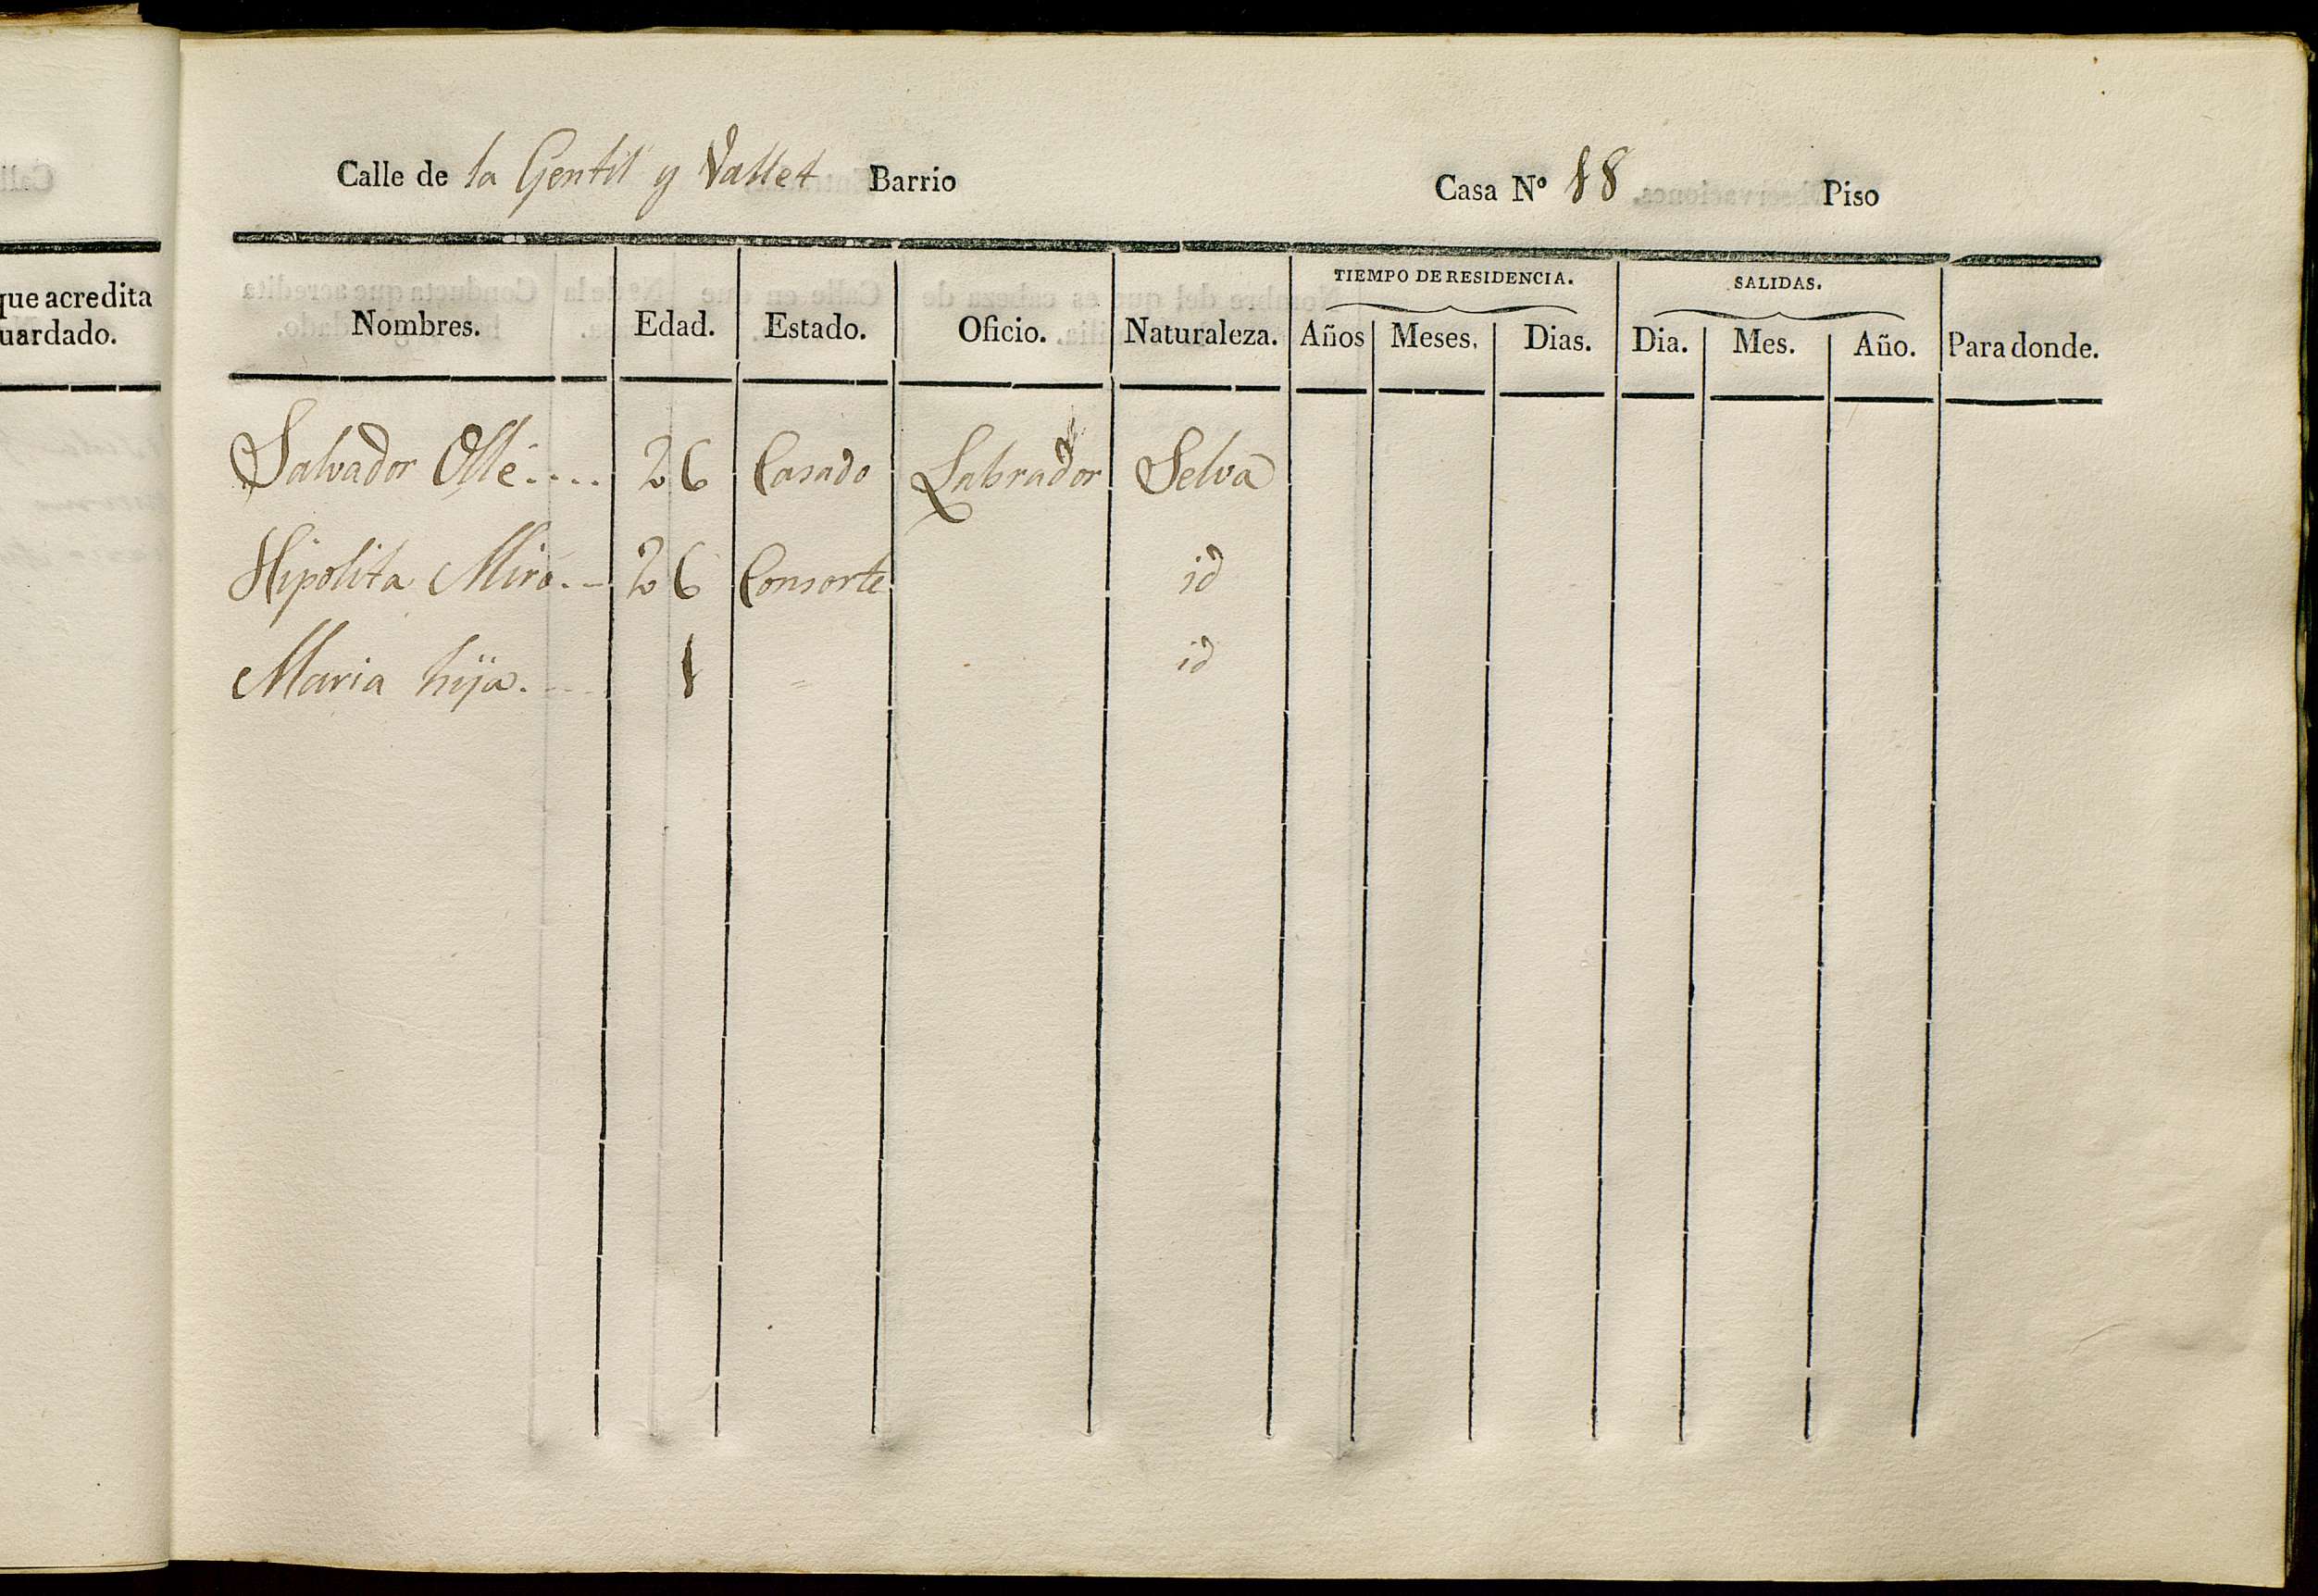 que acredita
uardado.
Calle de la Gentil y Vallet Barrio Casa Nº 18 Piso
TIEMPO DE RESIDENCIA. SALIDAS.
Nombres. Edad. Estado. Oficio. Naturaleza. Años Meses. Dias. Dia. Mes. Año. Para donde.
Salvador Ollé.... 26 Casado Labrador Selva
Hipolita Miró.- 26 Consorte id
Maria hija.--- 1 id